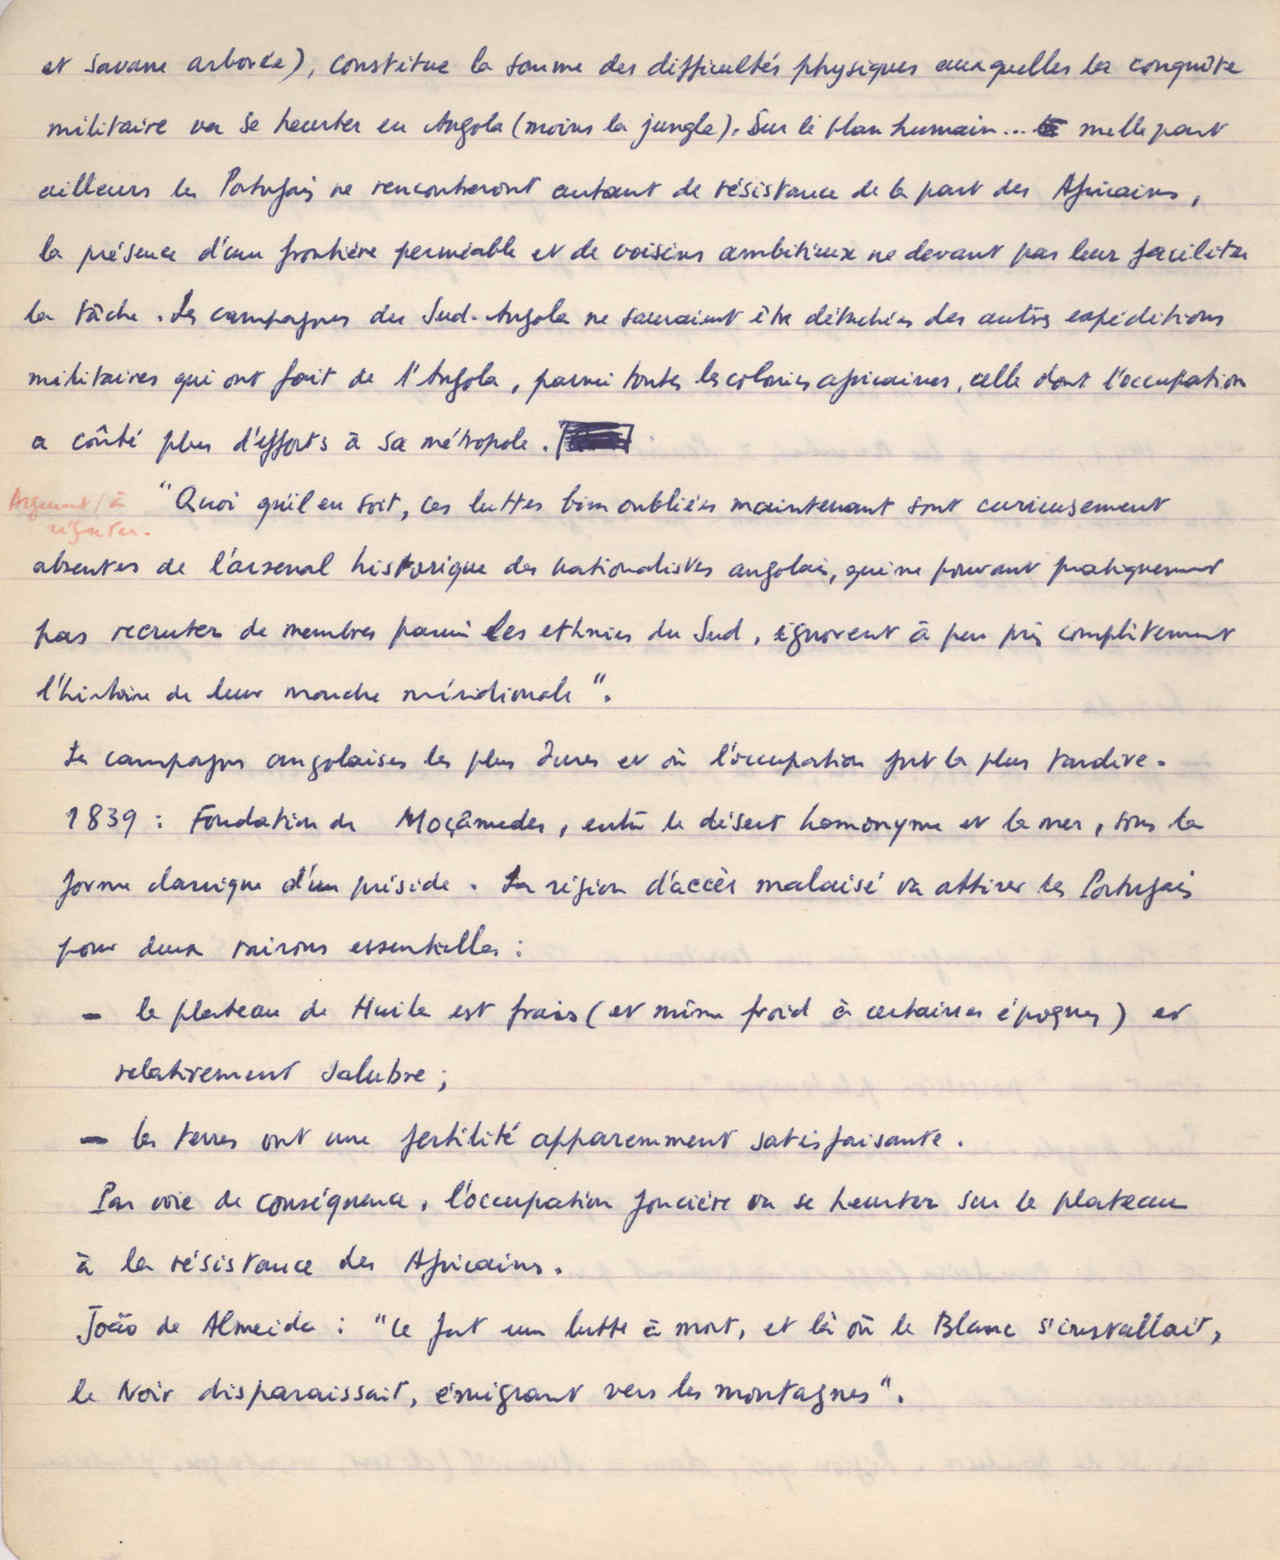 et savane arborée), constitue la somme des difficultés physiques auxquelles la conquête
militaire va se heurter en Angola (moins la jungle). Sur le plan humain... nulle part
ailleurs les Portugais ne rencontreront autant de résistance de la part des Africains,
la présence d'une frontière perméable et de voisins ambitieux ne devant pas leur faciliter
la tâche. Les campagnes du Sud-Angola ne sauraient être détachées des autres expéditions
militaires qui ont fait de l'Angola, parmi toutes les colonies africaines, celle dont l'occupation
a coûté plus d'efforts à sa métropole.
Argument / à
réfuter.
"Quoi qu'il en soit, ces luttes bien oubliées maintenant sont curieusement
absentes de l'arsenal historique des nationalistes angolais, qui ne pouvant pratiquement
pas recruter de membres parmi les ethnies du Sud, ignorent à peu près complètement
l'histoire de leur marche méridionale".
Les campagnes angolaises les plus dures et où l'occupation fut la plus tardive.
1839 : Fondation de Moçâmedes, entre le désert homonyme et la mer, sous la
forme classique d'un préside. La région d'accès malaisé va attirer les Portugais
pour deux raisons essentielles :
- le plateau de Huila est frais (et même froid à certaines époques) et
relativement salubre ;
- les terres ont une fertilité apparemment satisfaisante.
Par voie de conséquence, l'occupation foncière va se heurter sur le plateau
à la résistance des Africains.
João de Almeida : "Ce fut une lutte à mort, et là où le Blanc s'installait,
le Noir disparaissait, émigrant vers les montagnes".